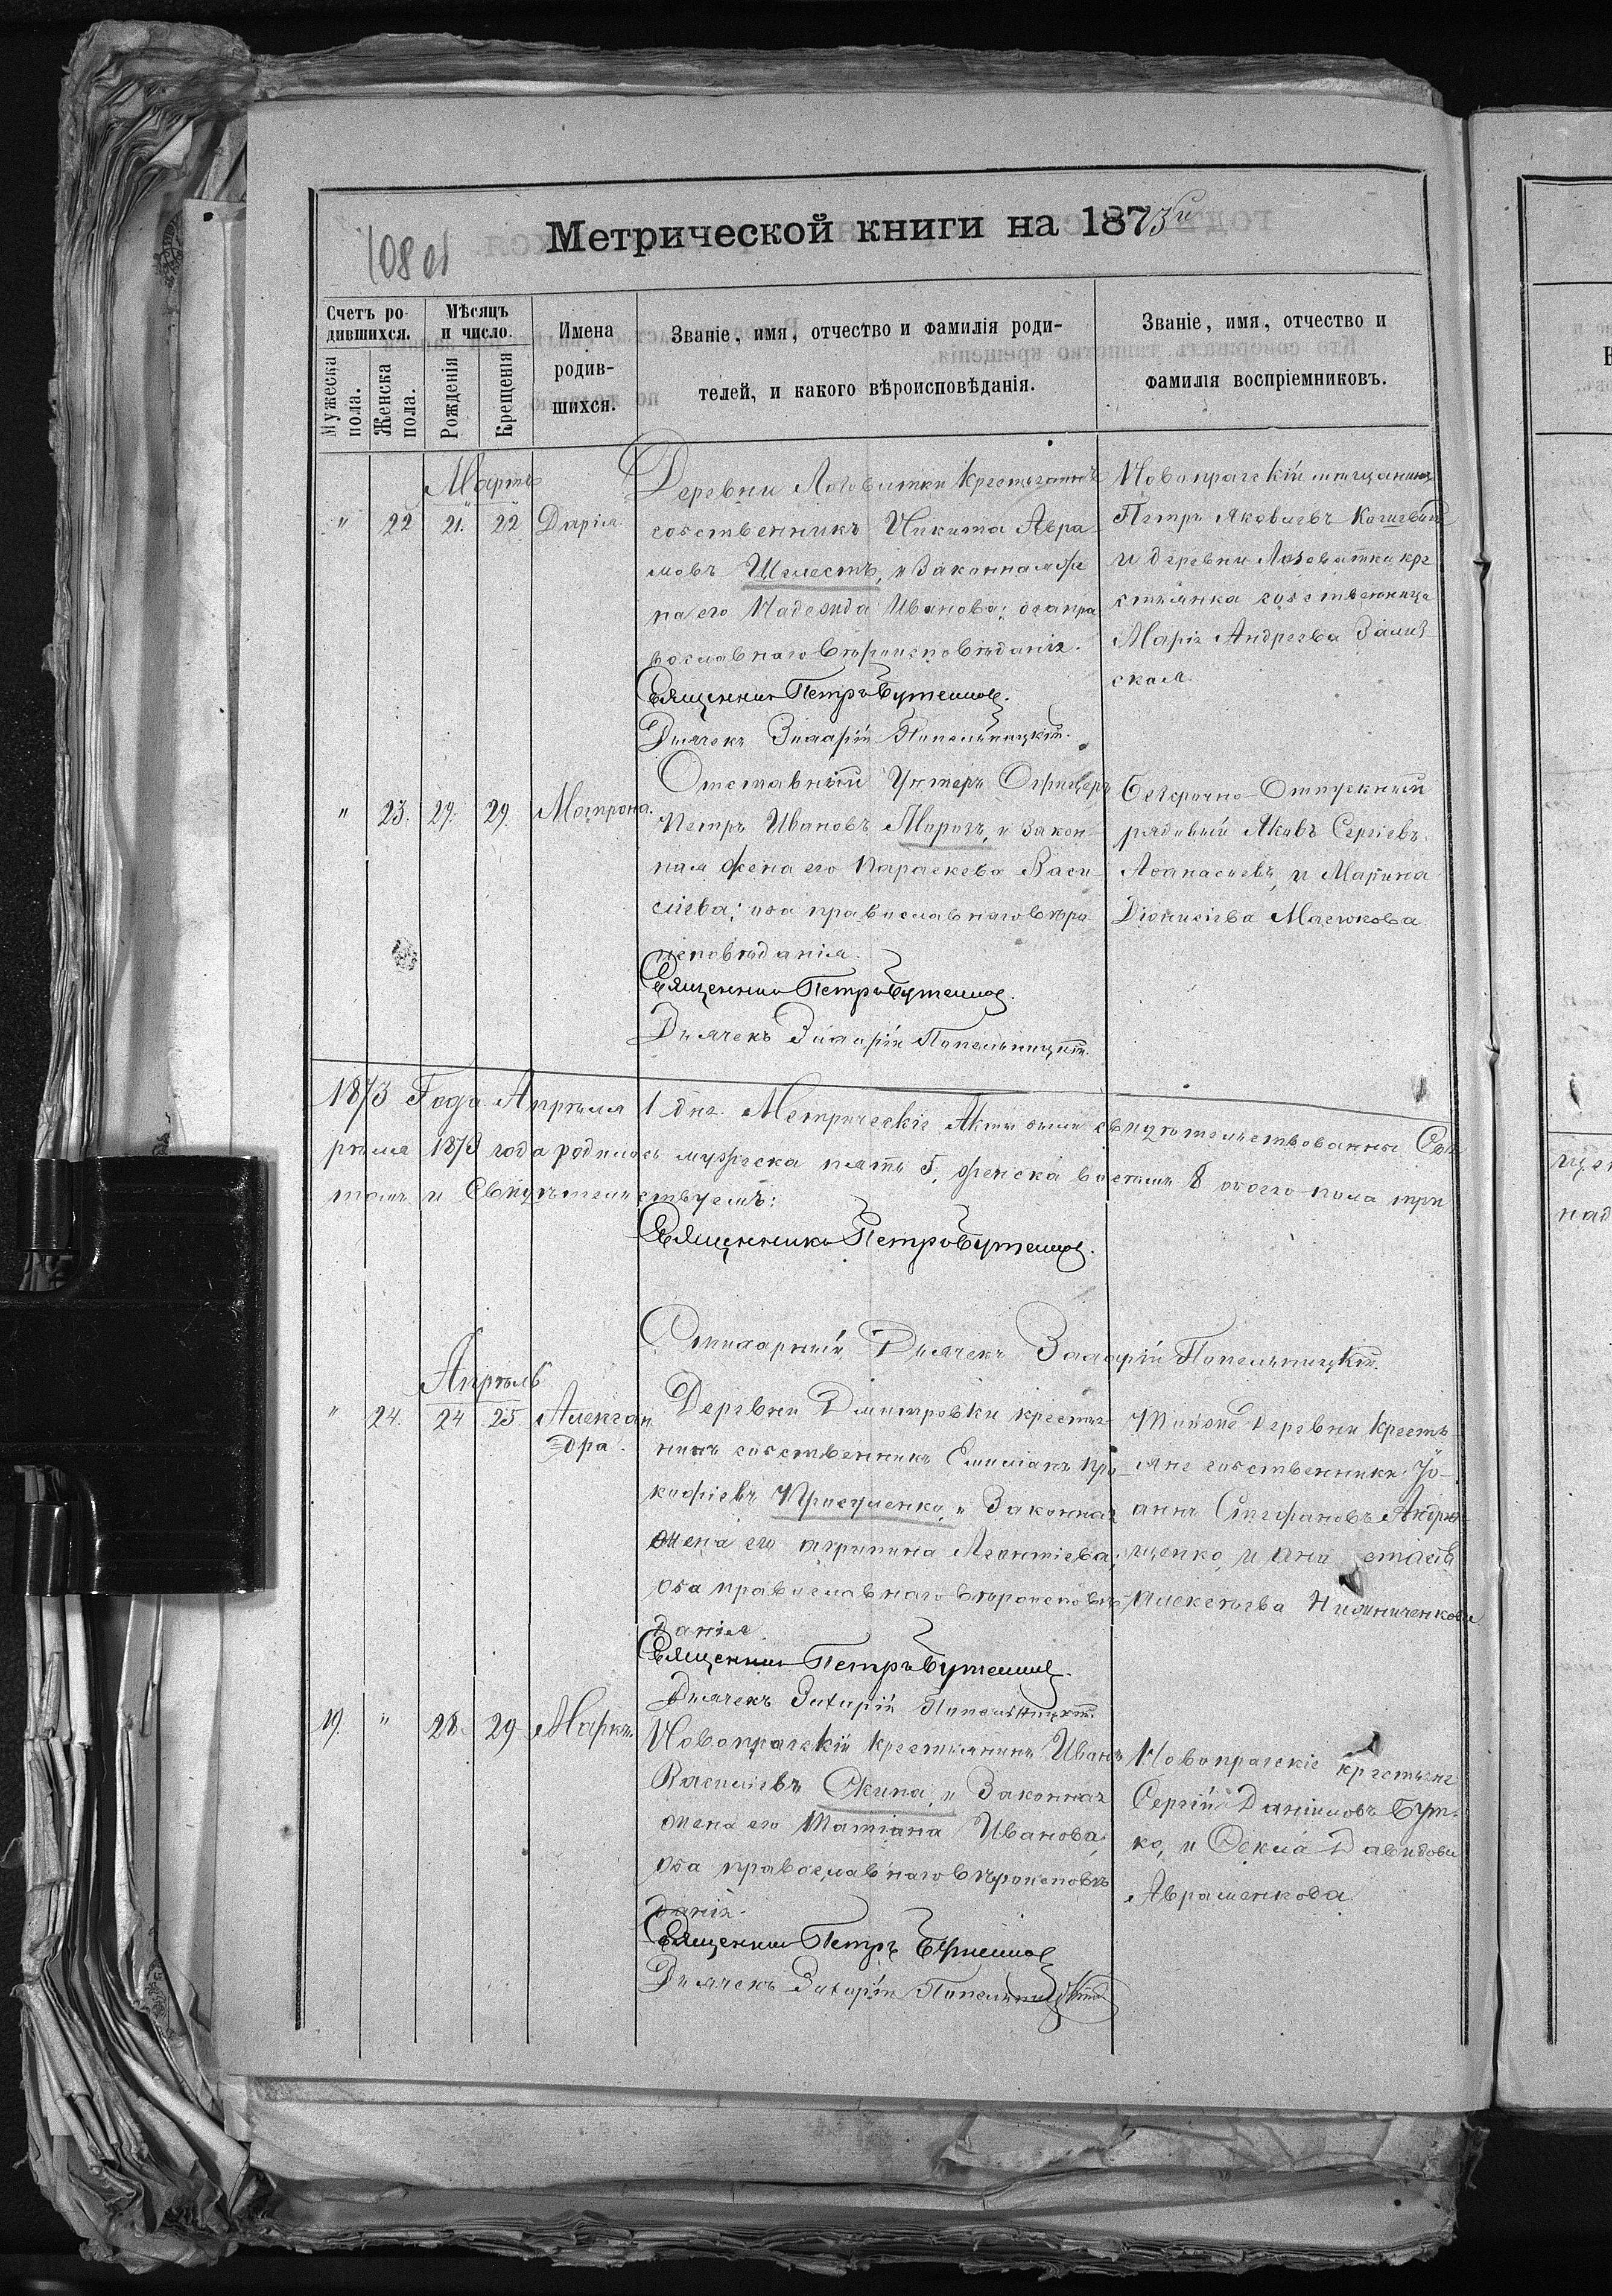 Метрической книги на 1873й
108 об
Счетъ родившихся.
Мѣсяцъ и число.
Мужеска пола.
Женска пола.
Рожденія
Крещенія
Имена родив-
шихся.
Званіе, имя, отчество и фамилія роди-
телей, и какого вѣроисповѣданія.
Званіе, имя, отчество и
фамилія воспріемниковъ.
Мартъ
" 22 21. 22 Дарія
Деревни Лозоватки крестьянинъ
собственникъ Никита Авра
мовъ Шелестъ, и законная же
на его Надежда Иванова; оба пра
вославнаго вѣроисповѣданія.
Священникъ Петръ
Дьячекъ Захарій Попельницкій.
Новопрагскій мещанинъ
Петръ Яковлевъ
и деревни Лозоватки кре
стьянка собственница
Марія Андреева
ская
" 23. 29. 29. Матрона.
Отставный Унтеръ Офицеръ
Петръ Ивановъ Морозъ, и закон
ная жена его Параскева Васи
лиева; оба православнаго вѣро
исповѣданія.
Священникъ Петръ
Дьячекъ Захарій Попельницкій.
Безсрочно Отпускный
рядовый Яковъ Сергіевъ
Аѳанасиевъ, и Марина
Діонисіева Маслюкова
1873 Года Апрѣля 1 дня. Метрическіе Акты были свидѣтельствованы
1873 года родилось мужеска пять 5, женска восемь 8 обоего пола три
и Свидѣтельствуемъ:
Священникъ Петръ
Стихарный Дьячекъ Захарій Попельницкій.
Апрѣль
" 24. 24 25 Алексан
дра.
Деревни Дмитровки крестья
нинъ собственникъ Емиліанъ Про
кофіевъ Присуленко, и законная
жена его агрипина Леонтіева;
оба православнаго вѣроисповѣ
данія
Священникъ Петръ
Дьячекъ Захарій Попельницкій.
Тойже деревни Кресть
яне собственники: Іо
аннъ Стефановъ Андрю
щенко, и
Алексѣева
19. " 28. 29 Маркъ
Новопрагскій крестьянинъ Иванъ
Василіевъ Скипа, и законная
жена его Татіана Иванова,
оба православнаго вѣроисповѣ
данія.
Священникъ Петръ
Дьячекъ Захарій Попельницкій
Новопрагскіе крестьяне
Сергій Даніиловъ Бут
ко, и Ѳекла Давидова
Авраменкова.